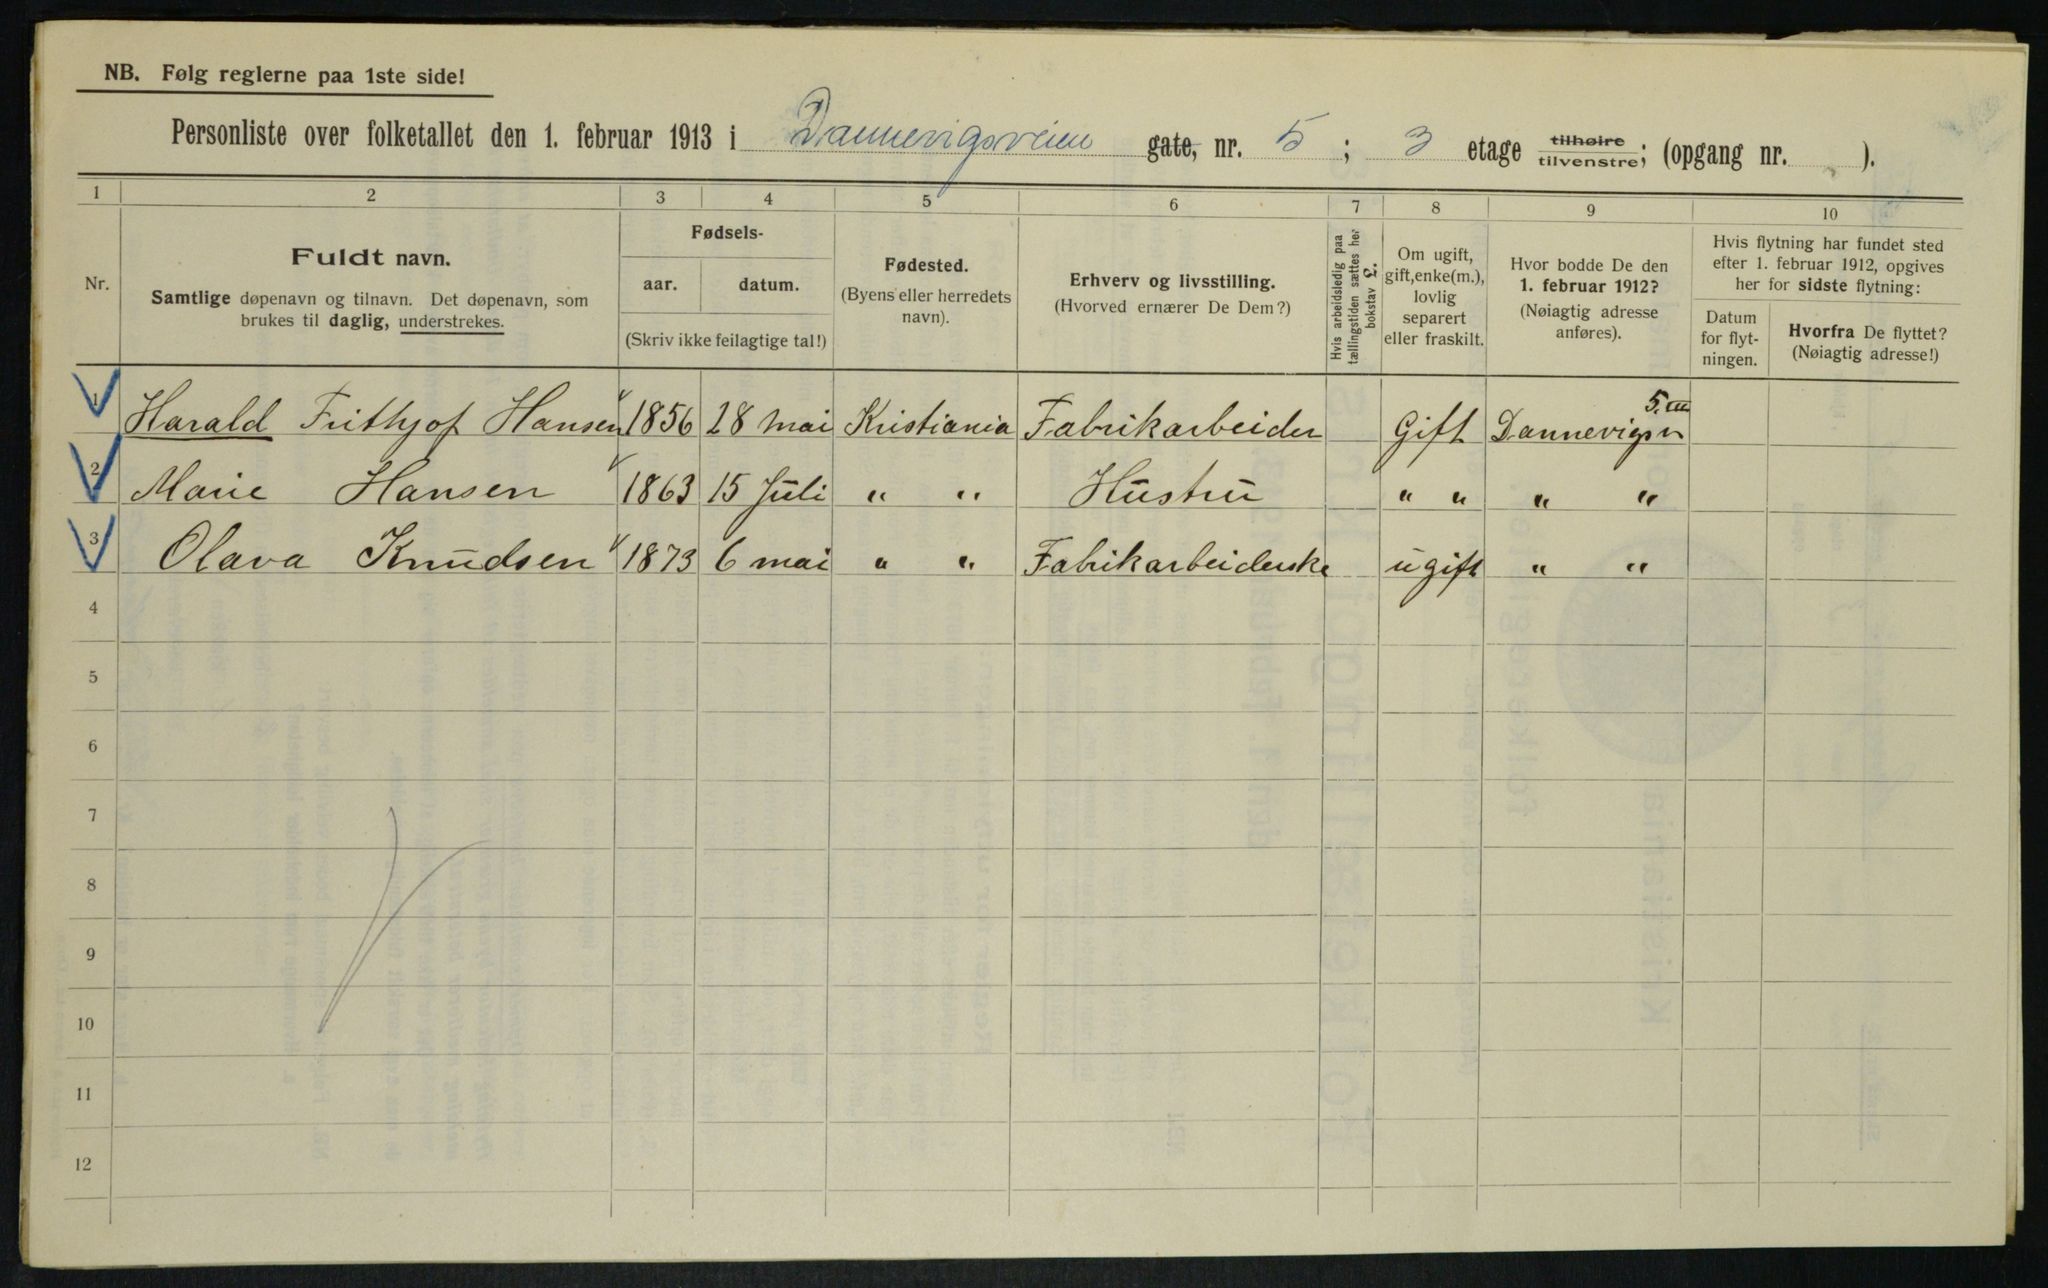 NB. Følg reglerne paa 1ste side!
Personliste over folketallet den 1. februar 1913 i Dannevigsveien gate, nr. 5 ; 3 etage tilhøire tilvenstre; (opgang nr. ).
1 2 3 4 5 6 7 8 9 10
Nr.
Fuldt navn.
Samtlige døpenavn og tilnavn. Det døpenavn, som
brukes til daglig, understrekes.
Fødsels-
aar. datum.
(Skriv ikke feilagtige tal!)
Fødested.
(Byens eller herredets
navn).
Erhverv og livsstilling.
(Hvorved ernærer De Dem?)
Hvis arbeidsledig paa
tællingstiden sættes her
bokstav L.
Om ugift,
gift, enke(m.),
lovlig
separert
eller fraskilt.
Hvor bodde De den
1. februar 1912?
(Nøiagtig adresse
anføres).
Hvis flytning har fundet sted
efter 1. februar 1912, opgives
her for sidste flytning:
Datum
for flyt-
ningen.
Hvorfra De flyttet?
(Nøiagtig adresse!)
1 Harald Frithjof Hansen 1856 28 mai Kristiania Fabrikarbeider Gift Dannevigsv 5.III
2 Marie Hansen 1863 15 Juli " " Hustru " " " "
3 Olava Knudsen 1873 6 mai " " Fabrikarbeiderske ugift " "
4
5
6
7
8
9
10
11
12